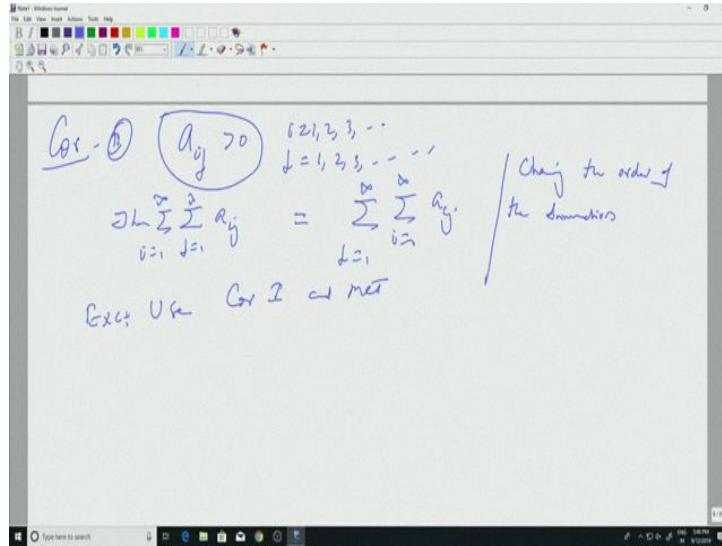 Note1 - Windows Journal
File Edit View Insert Actions Tools Help
Cor - II a_{ij} > 0 i = 1, 2, 3, ...
j = 1, 2, 3, ......
Then \sum_{i=1}^{\infty} \sum_{j=1}^{\infty} a_{ij} = \sum_{j=1}^{\infty} \sum_{i=1}^{\infty} a_{ij}. Chaing the order of
the Summations
Exc: Use Cor I and MCT
Type here to search
5:48 PM
9/12/2019